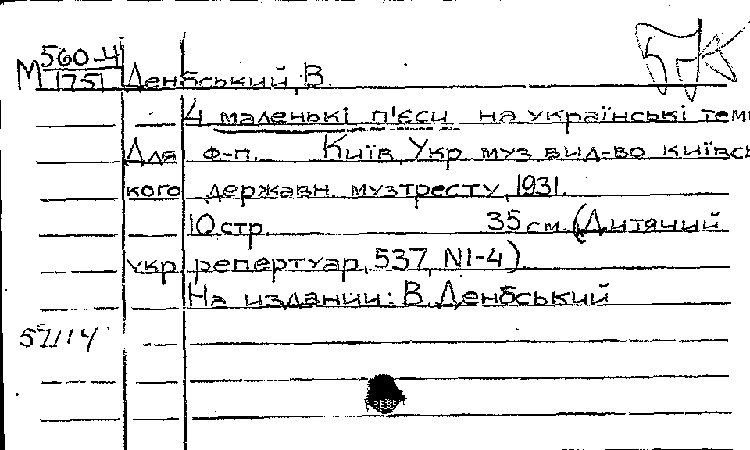 560-4
М 1751 Денбський, В.
4 маленькі п'єси на українські теми
Для ф-п. Київ, Укр. муз. вид-во київсь
кого державн. музтресту, 1931.
10 стр. 35 см. (Дитячий
укр. репертуар, 537, N1-4)
На издании: В. Денбський